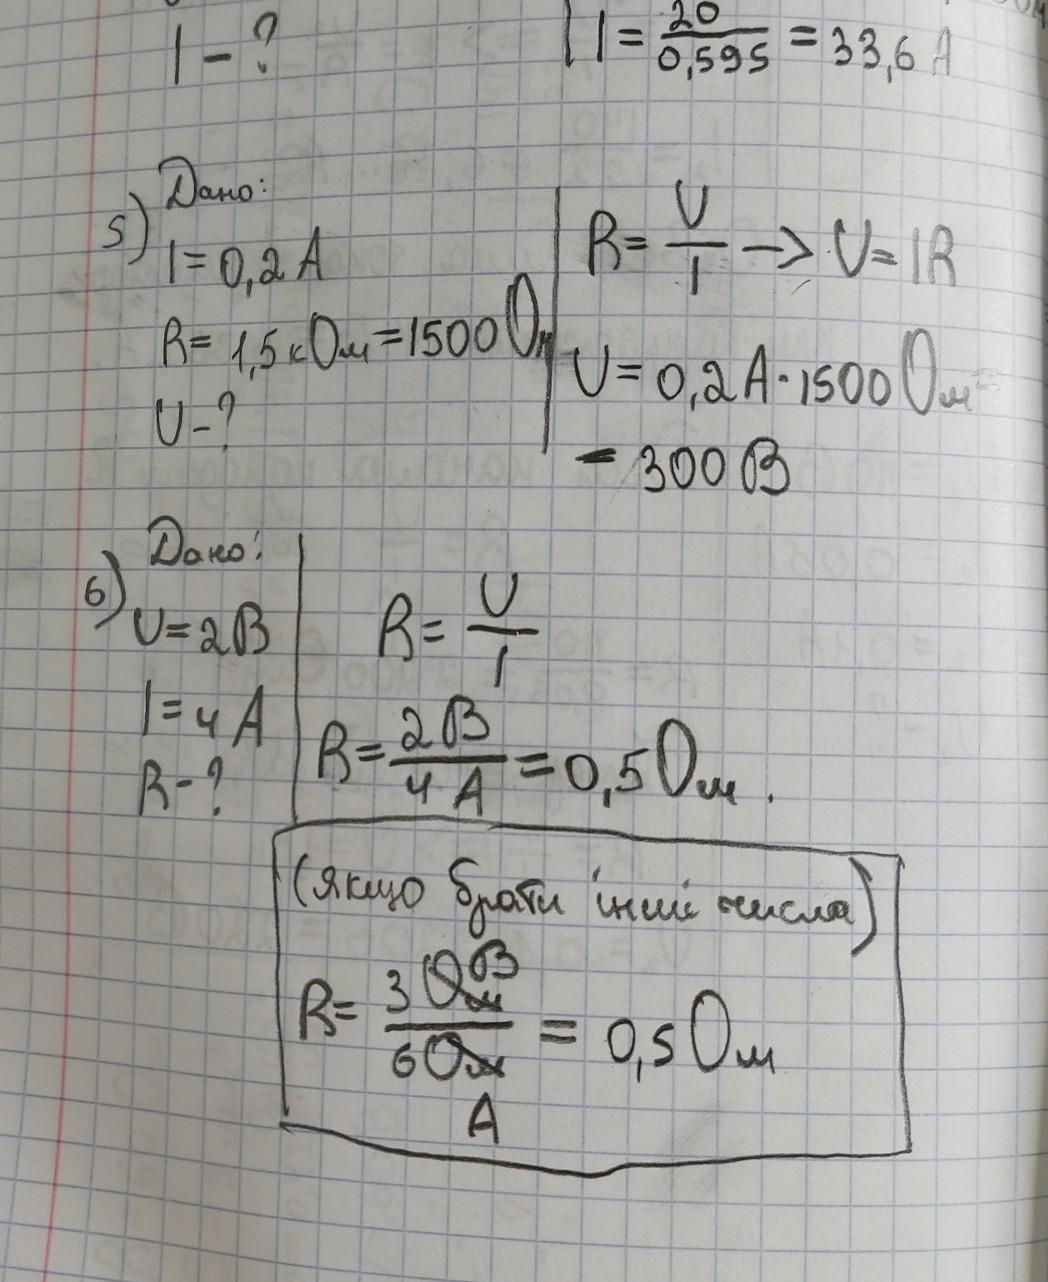 I - ?
I = 20/0,595 = 33,6 A
5) Дано:
I = 0,2 A
R = 1,5 кОм = 1500 Ом
U - ?
R = U/I → U = IR
U = 0,2 A · 1500 Ом =
= 300 В
6) Дано:
U = 2 В
I = 4 A
R - ?
R = U/I
R = 2 В/4 A = 0,5 Ом.
(якщо брати інші числа)
R = 3 В/6 A = 0,5 Ом